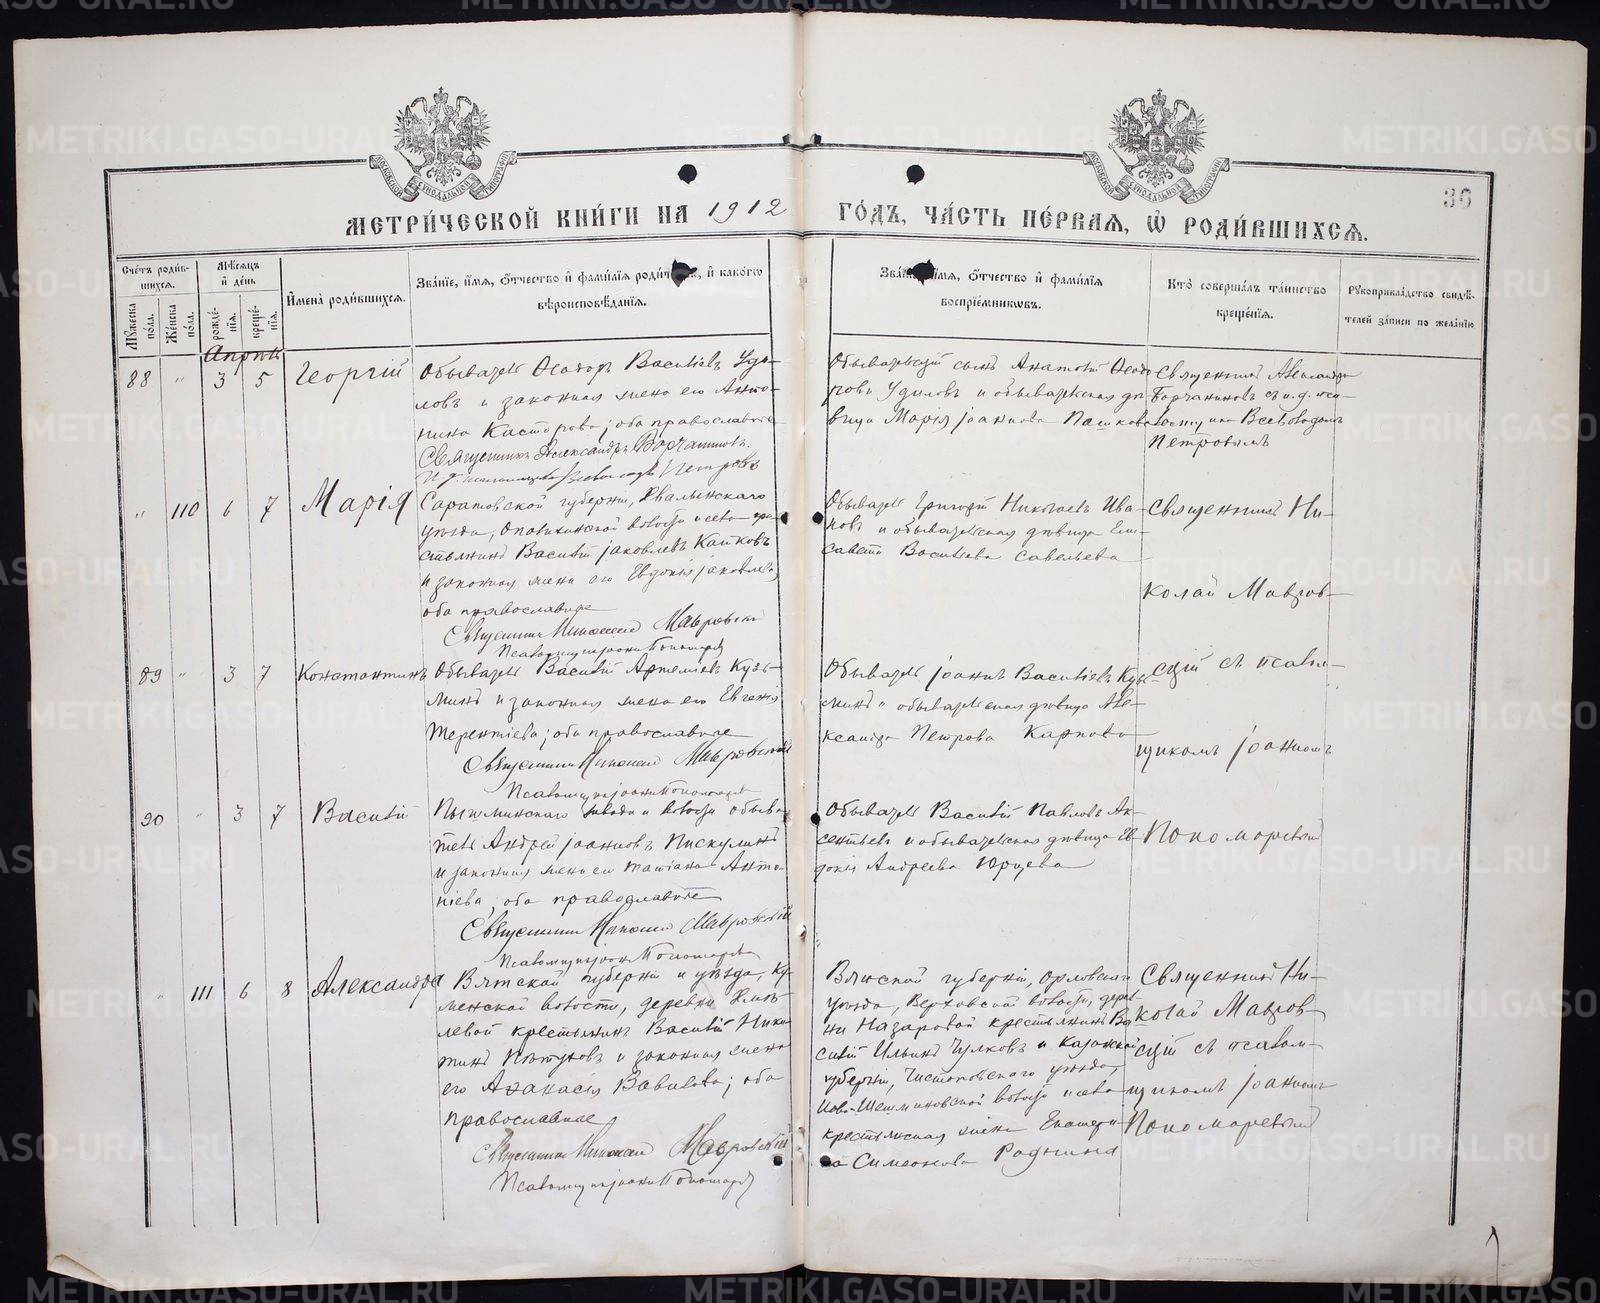 36
МЕТРИ́ЧЕСКОЙ КНИ́ГИ НА 1912 ГО́ДЪ, ЧА́СТЬ ПЕ́РВАЯ, Ѡ҆ РОДИ́ВШИХСѦ.
Сче́тъ роди́в-
шихся.
Мѣ́сяцъ
и҆ де́нь
Мꙋ́жеска по́ла.
Же́нска по́ла.
рожде́-
нїя.
креще́-
нїя.
И҆мена̀ роди́вшихся.
Зва́нїе, и҆́мя, ѻ҆́тчество и҆ фами́лїя роди́телей, и҆ како́гѡ
вѣроисповѣ́данїя.
Зва́нїе, и҆́мя, ѻ҆́тчество и҆ фами́лїя
воспрїе́мникѡвъ.
Кто̀ соверша́лъ та́инство
креще́нїя.
Рꙋкоприкла́дство свидѣ́-
телей за́писи по жела́нїю
Апрѣль
88 " 3 5 Георгій
Обыватель Ѳеодоръ Васильевъ Уди-
ловъ и законная жена его Анто-
нина Касторова; оба православные
Священникъ Александръ Борчаниновъ
И. д. псаломщика Всеволодъ Петровъ
Обывательскій сынъ Анатолій Ѳеодо-
ровъ Удиловъ и обывательская дѣ-
вица Марія Іоаннова Пашкова
Священникъ Александръ
Борчаниновъ съ и. д. пса-
ломщика Всеволодомъ
Петровымъ
" 110 6 7 Марія
Саратовской губерніи, Хвалынскаго
уѣзда, волости и села кре-
стьянинъ Василій Іаковлевъ Катковъ
и законная жена его Евдокія Іаковлева,
оба православные
Священникъ Николай Мавровскій
Псаломщикъ Іоаннъ Пономаревъ
Обыватель Григорій Николаевъ Ива-
новъ и обывательская дѣвица Ели-
савета Васильева Савельева
Священникъ Ни-
колай Мавров-
скій съ псалом-
щикомъ Іоанномъ
Пономаревымъ
89 " 3 7 Константинъ
Обыватель Василій Артеміевъ Кузь-
минъ и законная жена его Евгенія
Терентіева; оба православные
Священникъ Николай Мавровскій
Псаломщикъ Іоаннъ Пономаревъ
Обыватель Іоаннъ Васильевъ Кузь-
минъ и обывательская дѣвица Але-
ксандра Петрова Карпова
90 " 3 7 Василій
Пышминскаго завода и волости обыва-
тель Андрей Іоанновъ Пискулинъ
и законная жена его Татіана Анто-
ніева, оба православные
Священникъ Николай Мавровскій
Псаломщикъ Іоаннъ Пономаревъ
Обыватель Василій Павловъ Ав-
сентьевъ и обывательская дѣвица Ев-
докія Андреева Юрцева
" 111 6 8 Александра
Вятской губерніи и уѣзда, Ку-
менской волости, деревни
крестьянинъ Василій Ники-
тинъ Пѣтуховъ и законная жена
его Аѳанасія Вавилова; оба
православные
Священникъ Николай Мавровскій
Псаломщикъ Іоаннъ Пономаревъ
Вятской губерніи, Орловскаго
уѣзда, Верховской волости, дерев-
ни Назаровой крестьянинъ Ва-
силій Ильинъ Чулковъ и Казанской
губерніи, Чистопольскаго уѣзда,
Ново-Шешминовской волости и села
крестьянская жена Екатери-
на Симеонова Роднина
Священникъ Ни-
колай Мавров-
скій съ псалом-
щикомъ Іоанномъ
Пономаревымъ
METRIKI.GASO-URAL.RU